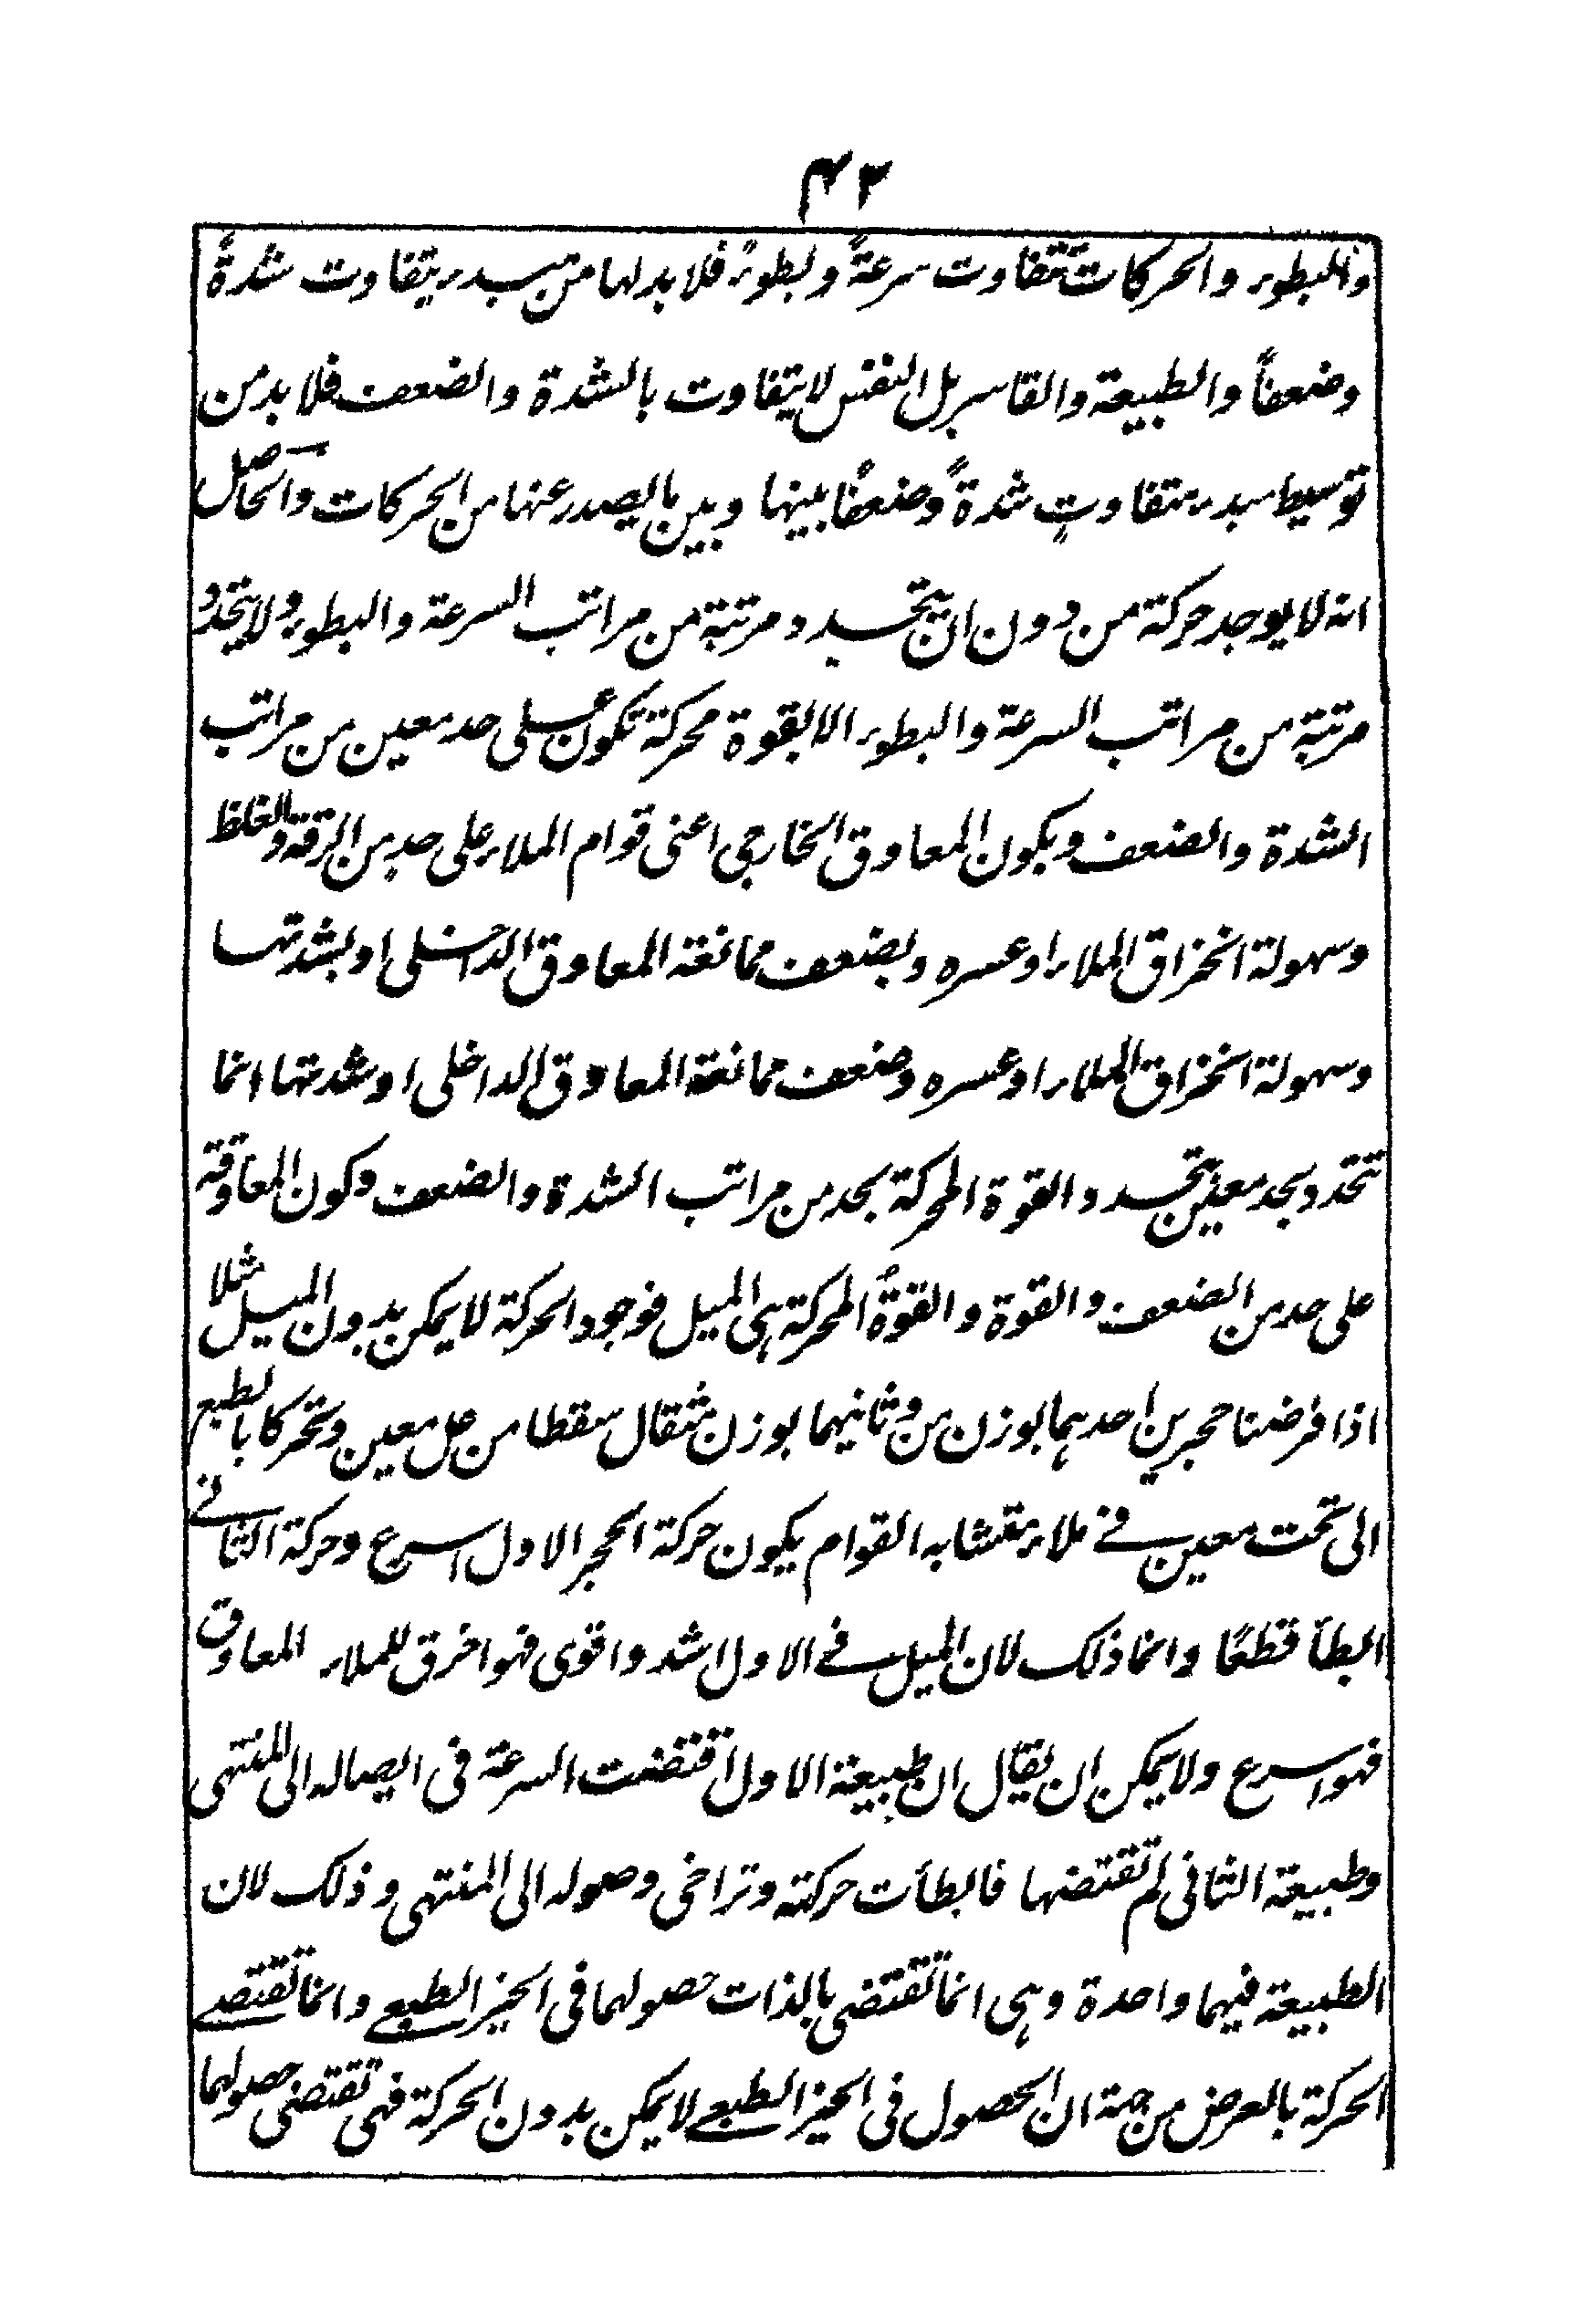 ٤٢
والبطوء والحركات تتفاوت سرعةً وبطوءً فلا بد لها من مبدء يتفاوت شدةً
وضعفاً والطبيعة والقاسر بل النفس لا يتفاوت بالشدة والضعف فلا بد من
توسيط مبدء متفاوتٍ شدةً وضعفًا بينها وبين ما يصدر عنها من الحركات والحاصل
انه لا يوجد حركة من دون ان يتحدد مرتبة من مراتب السرعة والبطوء ولا يتحدد
مرتبة من مراتب السرعة والبطوء الا بقوة محركة تكون على حد معين من مراتب
الشدة والضعف ويكون المعاوق الخارجى اعنى قوام الملاء على حد من الرقة والغلظ
وسهولة انخراق الملاء او عسره وبضعف ممانعة المعاوق الداخلى او بشدتها
وسهولة انخراق الملاء او عسره وضعف ممانعة المعاوق الداخلى او شدتها انما
تتحدد بحد معين بتحدد القوة المحركة بحد من مراتب الشدة والضعف وكون المعاوقة
على حد من الضعف والقوة والقوةُ المحركة هى الميل فوجود الحركة لا يمكن بدون الميل مثلا
اذا فرضنا حجرين احدهما بوزن من وثانيهما بوزن مثقال سقطا من عل معين وتحركا بالطبع
الى تحت معين فى ملاء متشابه القوام يكون حركة الحجر الاول اسرع وحركة الثانى
ابطأ قطعًا وانما ذلك لان الميل فى الاول اشد واقوى فهو اخرق للملاء المعاوق
فهو اسرع ولا يمكن ان يقال ان طبيعة الاول اقتضت السرعة فى ايصاله الى المنتهى
وطبيعة الثانى لم تقتضها فابطأت حركته وتراخى وصوله الى المنتهى وذلك لان
الطبيعة فيهما واحدة وهى انما تقتضى بالذات حصولهما فى الحيز الطبعى وانما تقتضى
الحركة بالعرض من جهة ان الحصول فى الحيز الطبعى لا يمكن بدون الحركة فهى تقتضى حصولهما